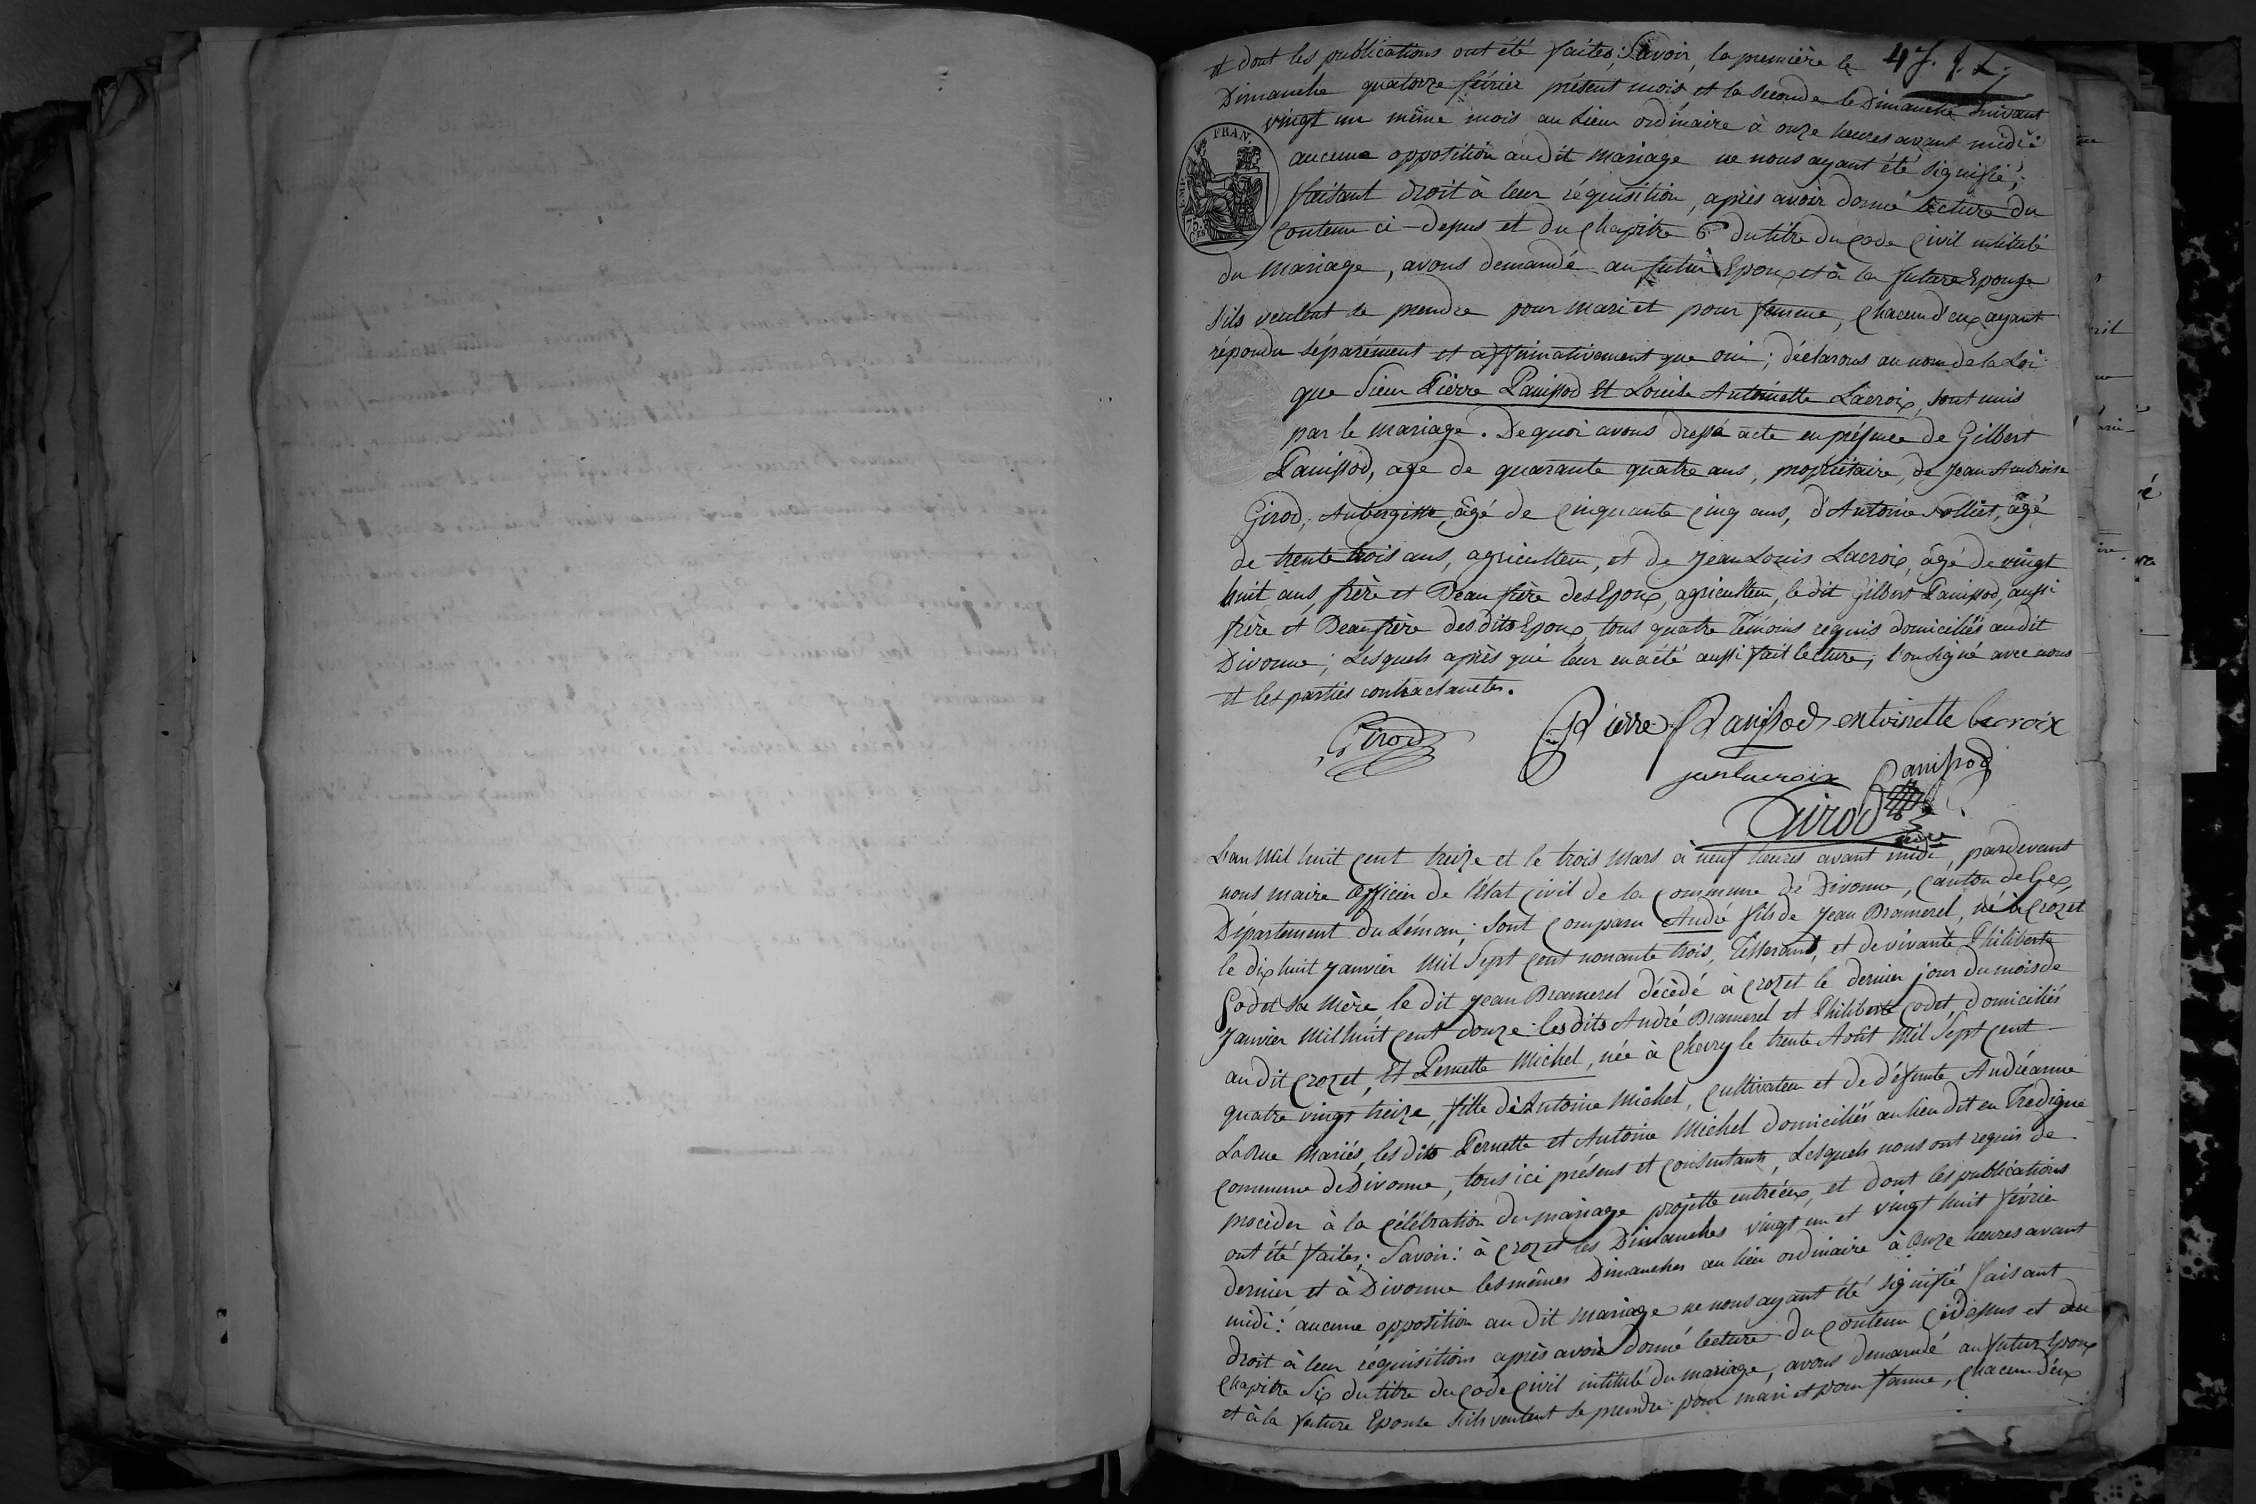 et dont les publications ont été faites; Savoir, la première le 4
Dimanche quatorze février présent mois et la seconde le Dimanche suivant
vingt un même mois au lieu ordinaire à onze heures avant midi:
aucune opposition audit mariage ne nous ayant été signifié;
faisant droit à leur réquisition, après avoir donné lecture du
FRAN.
EMP.
75
contenu ci-depus et du chapitre 6e du titre du code civil intitulé
du Mariage, avons demandé au futur Epoux et à la future Epouse
s'ils veulent se prendre pour mari et pour femme, chacun d'eux ayant
répondu séparément et affirmativement que oui; déclarons au nom de la Loi
que Sieur Pierre Panissod Et Louise Antoinette Lacroix, sont unis
par le mariage. De quoi avons dressé acte en présence de Gilbert
Panissod, age de quarante quatre ans, propriétaire, de Jean Ambroise
Girod, Aubergiste, âgé de cinquante cinq ans, d'Antoine Solliet, âgé
de trente trois ans, agriculteur, et de Jean Louis Lacroix, âgé de vingt
huit ans, frère et Beau frère des Epoux, agriculteur, le dit Gilbert Panissod, aussi
frère et Beaufrère desdits Epoux, tous quatre Témoins requis domiciliés audit
Divonne; Lesquels après qui leur en a été aussi fait lecture, l'on signé avec nous
et les parties contractantes.
Girod Pierre Panissod entoinette lacroix
jean lacroix Panissod
Girod
L'an Mil huit cent treize et le trois Mars à neuf heures avant midi, pardevant
nous maire officier de l'état civil de la commune de Divonne, canton de Gex,
Département du Léman; Sont comparu André fils de Jean Bramerel, né à Crozet
le dix huit Janvier Mil Sept cent nonante trois, Tisserand, et de vivante Philiberte
Godet sa Mère le dit Jean Bramerel décédé à Crozet le dernier jour du mois de
Janvier Mil huit cent douze. les dits André Bramerel et Philiberte Godet domiciliés
au dit Crozet, Et Pernette Michel, née à Chevry le trente Août Mil Sept cent
quatre vingt treize, fille d'Antoine Michel, cultivateur et de défunte Andréanne
LaRue Mariés, les dits Pernette et Antoine Michel domiciliés au lieu dit en Trédigne
commune de Divonne, tous ici présens et consentants, Lesquels nous ont requis de
procéder à la célébration du mariage projetté entréeux, et dont les publications
ont été faites; Savoir: à Crozet les Dimanches vingt un et vingt huit février
dernier et à Divonne les mêmes Dimanches au lieu ordinaire à onze heures avant
midi: aucune opposition au dit mariage ne nous ayant été signifié faisant
droit à leur réquisitions après avoir donné lecture du contenu cidessus et du
Chapitre Six du titre du code civil intitulé du mariage, avons demandé au futur Epoux
et à la future Epouse s'ils veulent se prendre pour mari et pour famme, chacun d'eux